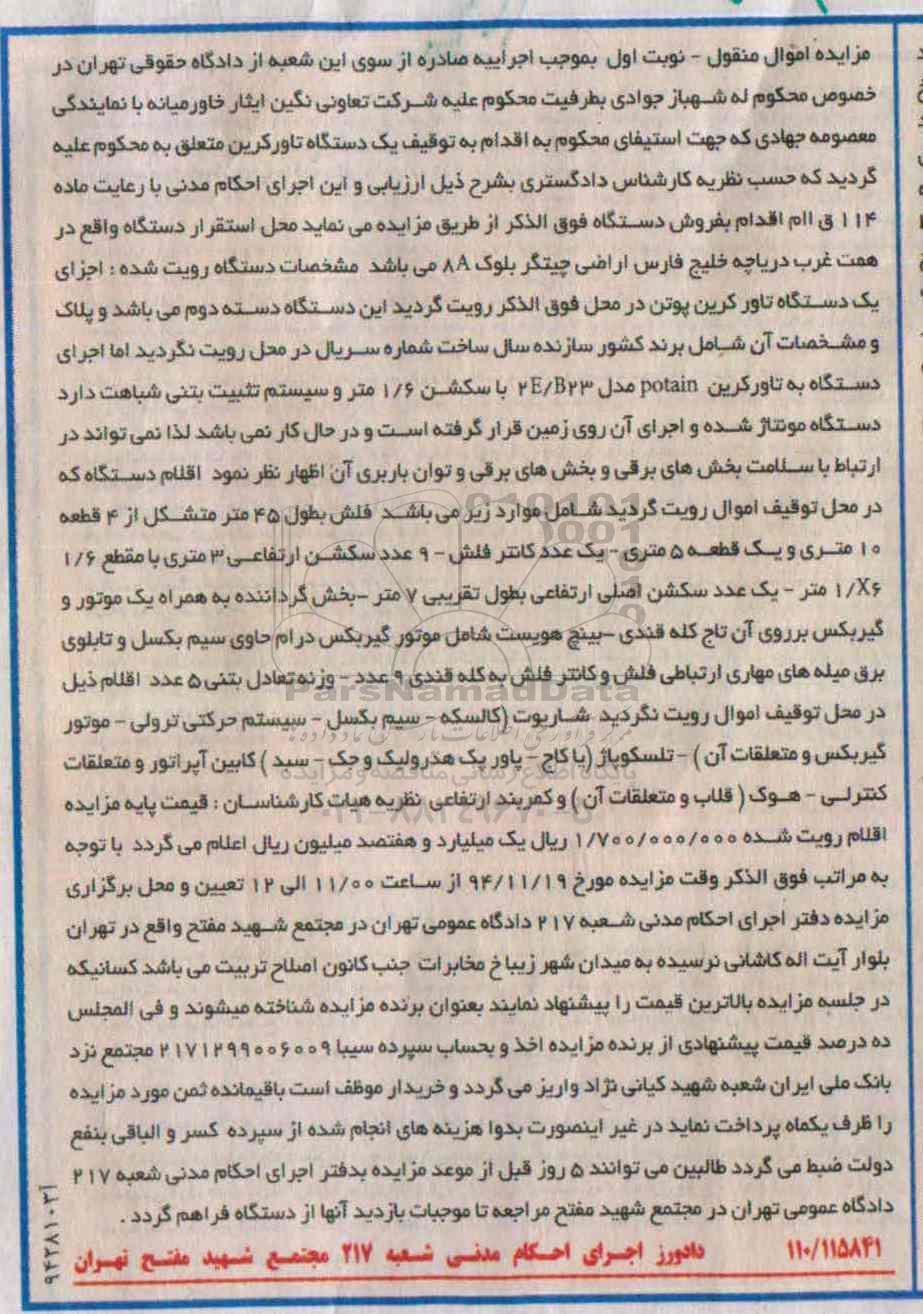 مزایده اموال منقول - نوبت اول بموجب اجراییه صادره از سوی این شعبه از دادگاه حقوقی تهران در
خصوص محکوم له شهباز جوادی بطرفیت محکوم علیه شرکت تعاونی نگین ایثار خاورمیانه با نمایندگی
معصومه جهادی که جهت استیفای محکوم به اقدام به توقیف یک دستگاه تاورکرین متعلق به محکوم علیه
گردید که حسب نظریه کارشناس دادگستری بشرح ذیل ارزیابی و این اجرای احکام مدنی با رعایت ماده
۱۱۴ ق اام اقدام بفروش دستگاه فوق الذکر از طریق مزایده می نماید محل استقرار دستگاه واقع در
همت غرب دریاچه خلیج فارس اراضی چیتگر بلوک ۸A می باشد مشخصات دستگاه رویت شده : اجزای
یک دستگاه تاور کرین پوتن در محل فوق الذکر رویت گردید این دستگاه دسته دوم می باشد و پلاک
و مشخصات آن شامل برند کشور سازنده سال ساخت شماره سریال در محل رویت نگردید اما اجرای
دستگاه به تاورکرین potain مدل ۲E/B۲۳ با سکشن ۱/۶ متر و سیستم تثبیت بتنی شباهت دارد
دستگاه مونتاژ شده و اجرای آن روی زمین قرار گرفته است و در حال کار نمی باشد لذا نمی تواند در
ارتباط با سلامت بخش های برقی و بخش های برقی و توان باربری آن اظهار نظر نمود اقلام دستگاه که
در محل توقیف اموال رویت گردید شامل موارد زیر می باشد فلش بطول ۴۵ متر متشکل از ۴ قطعه
۱۰ متری و یک قطعه ۵ متری - یک عدد کانتر فلش - ۹ عدد سکشن ارتفاعی ۳ متری با مقطع ۱/۶
۱/X۶ متر - یک عدد سکشن اصلی ارتفاعی بطول تقریبی ۷ متر -بخش گرداننده به همراه یک موتور و
گیربکس برروی آن تاج کله قندی -بینچ هویست شامل موتور گیربکس درام حاوی سیم بکسل و تابلوی
برق میله های مهاری ارتباطی فلش و کانتر فلش به کله قندی ۹ عدد - وزنه تعادل بتنی ۵ عدد اقلام ذیل
در محل توقیف اموال رویت نگردید شاریوت (کالسکه - سیم بکسل - سیستم حرکتی ترولی - موتور
گیربکس و متعلقات آن ) - تلسکوپاژ (یا کاج - پاور پک هدرولیک و جک - سبد ) کابین آپراتور و متعلقات
کنترلی - هوک ( قلاب و متعلقات آن ) و کمربند ارتفاعی نظریه هیات کارشناسان : قیمت پایه مزایده
اقلام رویت شده ۱/۷۰۰/۰۰۰/۰۰۰ ریال یک میلیارد و هفتصد میلیون ریال اعلام می گردد با توجه
به مراتب فوق الذکر وقت مزایده مورخ ۹۴/۱۱/۱۹ از ساعت ۱۱/۰۰ الی ۱۲ تعیین و محل برگزاری
مزایده دفتر اجرای احکام مدنی شعبه ۲۱۷ دادگاه عمومی تهران در مجتمع شهید مفتح واقع در تهران
بلوار آیت اله کاشانی نرسیده به میدان شهر زیبا خ مخابرات جنب کانون اصلاح تربیت می باشد کسانیکه
در جلسه مزایده بالاترین قیمت را پیشنهاد نمایند بعنوان برنده مزایده شناخته میشوند و فی المجلس
ده درصد قیمت پیشنهادی از برنده مزایده اخذ و بحساب سپرده سیبا ۲۱۷۱۲۹۹۰۰۶۰۰۹ مجتمع نزد
بانک ملی ایران شعبه شهید کیانی نژاد واریز می گردد و خریدار موظف است باقیمانده ثمن مورد مزایده
را ظرف یکماه پرداخت نماید در غیر اینصورت بدوا هزینه های انجام شده از سپرده کسر و الباقی بنفع
دولت ضبط می گردد طالبین می توانند ۵ روز قبل از موعد مزایده بدفتر اجرای احکام مدنی شعبه ۲۱۷
دادگاه عمومی تهران در مجتمع شهید مفتح مراجعه تا موجبات بازدید آنها از دستگاه فراهم گردد .
۱۱۰/۱۱۵۸۴۱ دادورز اجرای احکام مدنی شعبه ۲۱۷ مجتمع شهید مفتح تهران
۹۴۲۸۱۰۳آ
ParsNamadData
پایگاه اطلاع رسانی مناقصه و مزایده
۰۲۱-۸۸۳۴۹۶۷۰-۵